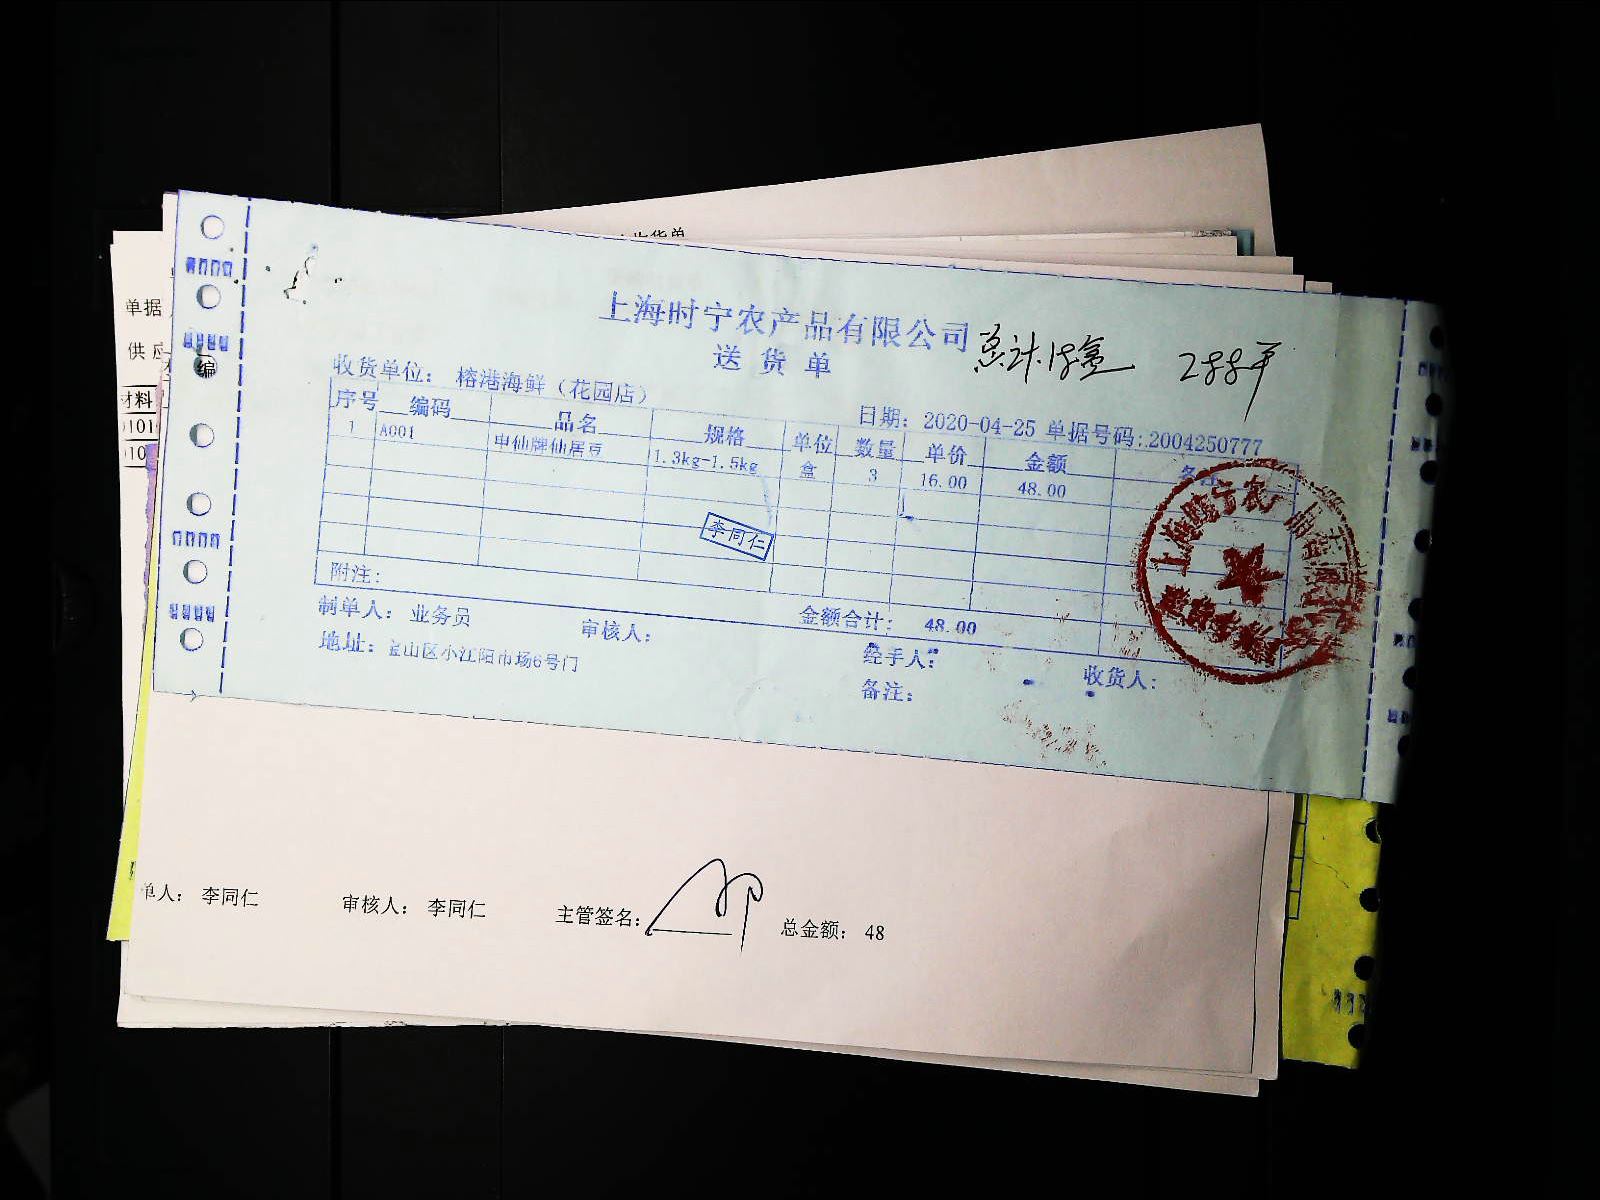 收货单
单据
供应
编
材料
0101
010
上海时宁农产品有限公司
总计:18盒 288平
送货单
收货单位: 榕港海鲜(花园店) 日期: 2020-04-25 单据号码:2004250777
序号 编码 品名 规格 单位 数量 单价 金额 备注
1 A001 申仙牌仙居豆 1.3kg-1.5kg 盒 3 16.00 48.00
李同仁
上海时宁农产品有限公司
附注:
制单人: 业务员 审核人: 金额合计: 48.00
地址: 宝山区小江阳市场6号门 经手人: 收货人:
备注:
单人: 李同仁 审核人: 李同仁 主管签名: 总金额: 48